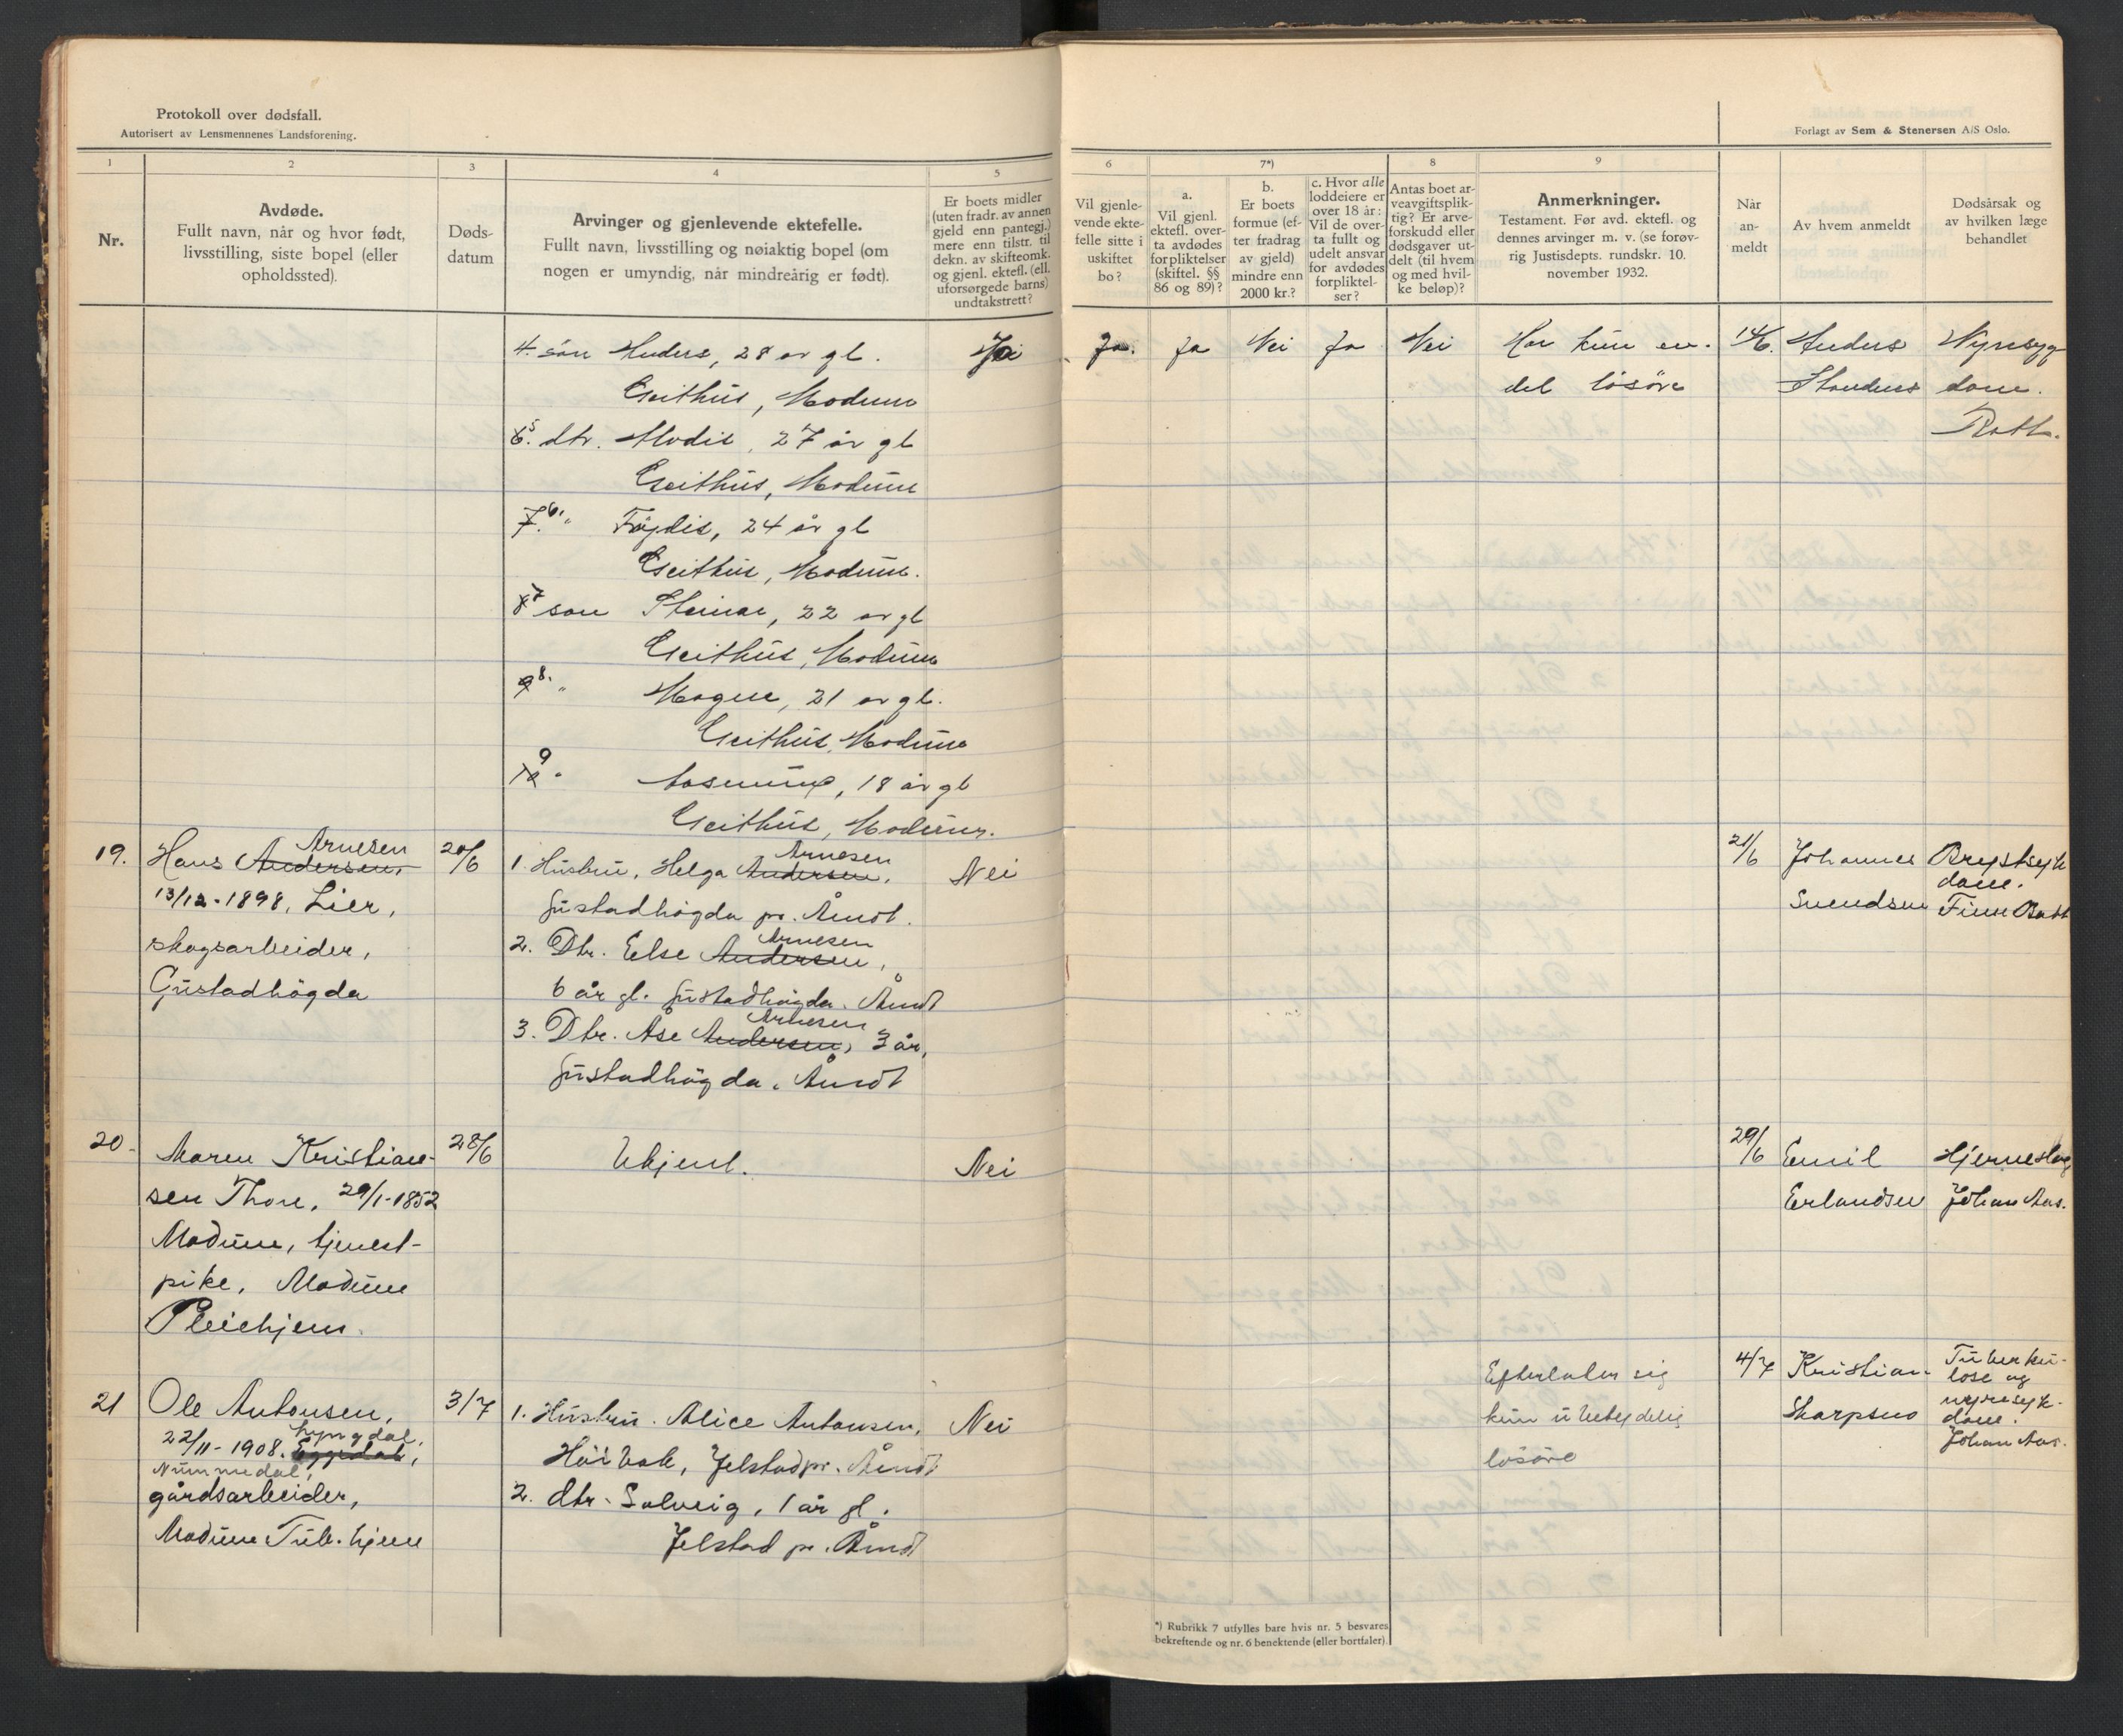 Protokoll over dødsfall.
Autorisert av Lensmennenes Landsforening.
Forlagt av Sem & Stenersen A/S Oslo.
1
2
3
4
5
6
7*)
8
9
Nr.
Avdøde.
Fullt navn, når og hvor født,
livsstilling, siste bopel (eller
opholdssted).
Døds-
datum
Arvinger og gjenlevende ektefelle.
Fullt navn, livsstilling og nøiaktig bopel (om
nogen er umyndig, når mindreårig er født).
Er boets midler
(uten fradr. av annen
gjeld enn pantegj.)
mere enn tilstr. til
dekn. av skifteomk.
og gjenl. ektefl. (ell.
uforsørgede barns)
undtakstrett?
Vil gjenle-
vende ekte-
felle sitte i
uskiftet
bo?
a.
Vil gjenl.
ektefl. over-
ta avdødes
forpliktelser
(skiftel. §§
86 og 89)?
b.
Er boets
formue (ef-
ter fradrag
av gjeld)
mindre enn
2000 kr.?
c. Hvor alle
loddeiere er
over 18 år:
Vil de over-
ta fullt og
udelt ansvar
for avdødes
forpliktel-
ser?
Antas boet ar-
veavgiftsplik-
tig? Er arve-
forskudd eller
dødsgaver ut-
delt (til hvem
og med hvil-
ke beløp)?
Anmerkninger.
Testament. Før avd. ektefl. og
dennes arvinger m. v. (se forøv-
rig Justisdepts. rundskr. 10.
november 1932.
Når
an-
meldt
Av hvem anmeldt
Dødsårsak og
av hvilken læge
behandlet
4. sön Anders, 28 år gl.
Geithus, Modum
5. dtr. Modis, 27 år gl
Geithus, Modum
6. " 24 år gl
Geithus, Modum.
7 sön Steinar, 22 år gl
Geithus, Modum
8. " Magne, 21 år gl.
Geithus, Modum
9 " Aasmund, 18 år gl
Geithus, Modum.
Ja. Ja Nei Ja Nei Har kun en
del lösöre
14/6. Anders
Nyresyg
dom.
19. Hans Andersen, Arnesen
13/12-1898, Lier,
skogsarbeider,
Gustadhögda
20/6
1. Hustru, Helga Andersen, Arnesen
Gustadhögda pr. Åmot.
2. Dtr. Else Andersen, Arnesen
6 år gl. Gustadhögda. Åmot
3. Dtr. Åse Andersen, Arnesen 3 år,
Gustadhögda. Åmot
Nei
21/6 Johannes
Svendsen
Brystsyk
dom.
Finn
20. Maren Kristian-
sen Thore, 29/1-1852
Modum, tjenest-
pike, Modum
Pleiehjem.
28/6
Ukjent.
Nei
29/6 Emil
Erlandsen
Hjerneslag
Johan Aas.
21 Ole Antonsen,
22/11-1908. Eggedal, Lyngdal,
Nummedal,
gårdsarbeider,
Modum Tub. hjem
3/7
1. Hustru. Alice Antonsen,
Jelstad pr. Åmot
2. dtr. Solveig, 1 år gl.
Jelstad pr. Åmot
Nei
Efterlater sig
kun ubetydelig
lösöre
4/7 Kristian
Skarpsno
Tuberku-
lose og
nyresyk-
dom.
Johan Aas.
*) Rubrikk 7 utfylles bare hvis nr. 5 besvares
bekreftende og nr. 6 benektende (eller bortfaler).